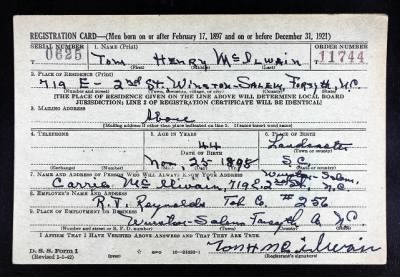 REGISTRATION CARD—(Men born on or after February 17, 1897 and on or before December 31, 1921)
SERIAL NUMBER 1. NAME (Print) ORDER NUMBER
0625 Tom Henry McIlwain 11744
2. PLACE OF RESIDENCE (Print)
710 E- 2nd St. Winston-Salem, Forsyth, N.C.
[THE PLACE OF RESIDENCE GIVEN ON THE LINE ABOVE WILL DETERMINE LOCAL BOARD
JURISDICTION; LINE 2 OF REGISTRATION CERTIFICATE WILL BE IDENTICAL]
3. MAILING ADDRESS
Above
(Mailing address if other than place indicated on line 2. If same insert word same)
4. TELEPHONE 5. AGE IN YEARS 6. PLACE OF BIRTH
44 Lancaster
DATE OF BIRTH (Town or county)
Nov. 25 1898 S.C.
(Exchange) (Number) (Mo.) (Day) (Yr.) (State or country)
7. NAME AND ADDRESS OF PERSON WHO WILL ALWAYS KNOW YOUR ADDRESS Winston-Salem,
Carrie McIlwain, 719 E. 2nd St., N.C.
8. EMPLOYER'S NAME AND ADDRESS
R. J. Reynolds Tob Co. #256
9. PLACE OF EMPLOYMENT OR BUSINESS
Winston-Salem Forsyth N.C.
(Number and street or R. F. D. number) (Town) (County) (State)
I AFFIRM THAT I HAVE VERIFIED ABOVE ANSWERS AND THAT THEY ARE TRUE.
D. S. S. Form 1
(Revised 1-1-42) GPO 16-21630-1 Tom H McIlwain